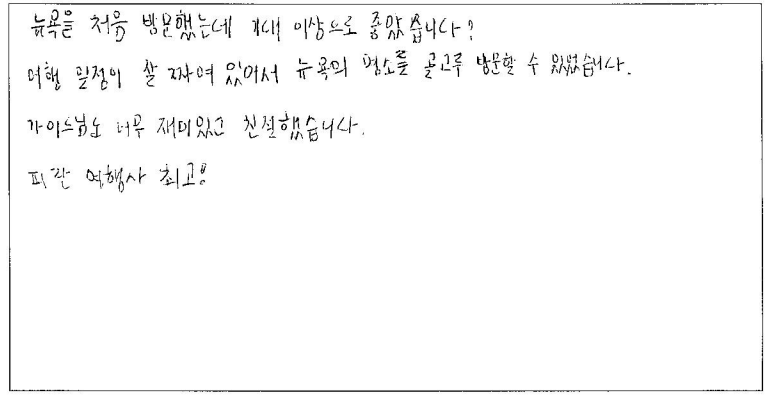 뉴욕을 처음 방문했는데 기대 이상으로 좋았습니다?
여행 일정이 잘 짜여 있어서 뉴욕의 명소를 골고루 방문할 수 있었습니다.
가이드님도 너무 재미있고 친절했습니다.
여행사 최고!